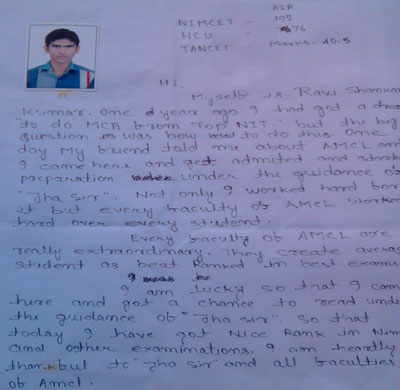 AIR
NIMCET - 192
HCU - 76
TANCET - Marks - 40.5
Hi,
Myself is Ravi Shankar
Kumar. One year ago I had got a
"to do MCA from Top NIT." but the big
question was how to do this. One
day My friend told me about AMCL and
I came here and get admited and
preparation under the guidance of
"Jha Sir". Not only I worked hard for
it but every faculty of AMCL worked
hard over every student.
Every faculty of AMCL are
really extraordinary. They create
student as best Ranked in best exams
I am lucky so that I
here and got a chance to read
the guidance of "Jha sir". So that
today I have got Nice Rank in
and other examinations. I am heartly
thankful to "Jha sir" and all faculties
of Amcl.